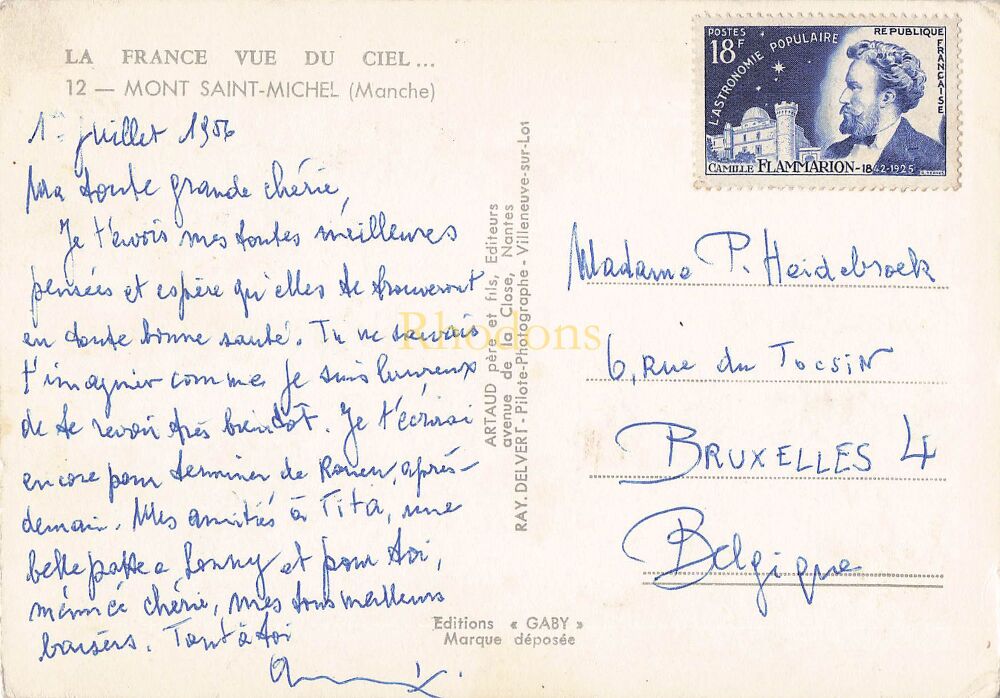 LA FRANCE VUE DU CIEL...
12 — MONT SAINT-MICHEL (Manche)
1er juillet 1956
Ma toute grande chérie,
Je t'envois mes toutes meilleures
pensées et espère qu'elles te trouveront
en toute bonne santé. Tu ne saurais
t'imaginer comme je suis heureux
de te revoir très bientôt. Je t'écrirai
encore pour terminer de Rouen, après-
demain. Mes amitiés à Tita, une
belle patte a Lonny et pour toi,
chérie, mes tous meilleurs
baisers. Tout à toi
ARTAUD père et fils, Editeurs
avenue de la Close, Nantes
RAY. DELVERT - Pilote-Photographe - Villeneuve-sur-Lot
Editions « GABY »
Marque déposée
POSTES
18F
RÉPUBLIQUE FRANÇAISE
L'ASTRONOMIE POPULAIRE
CAMILLE FLAMMARION-1842-1925
Madame P. Heidebroek
6, Rue du TocsiN
BRUXELLES 4
Belgique
Rhodons